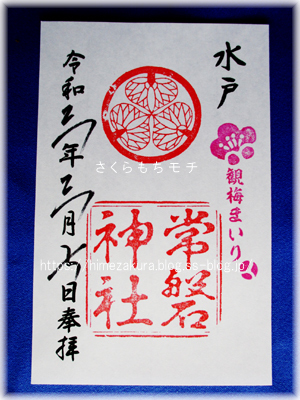 水戸
観梅まいり
常磐
神社
令和 年 月 日奉拝
さくらもちモチ
https://himezakura.blog.ss-blog.jp/